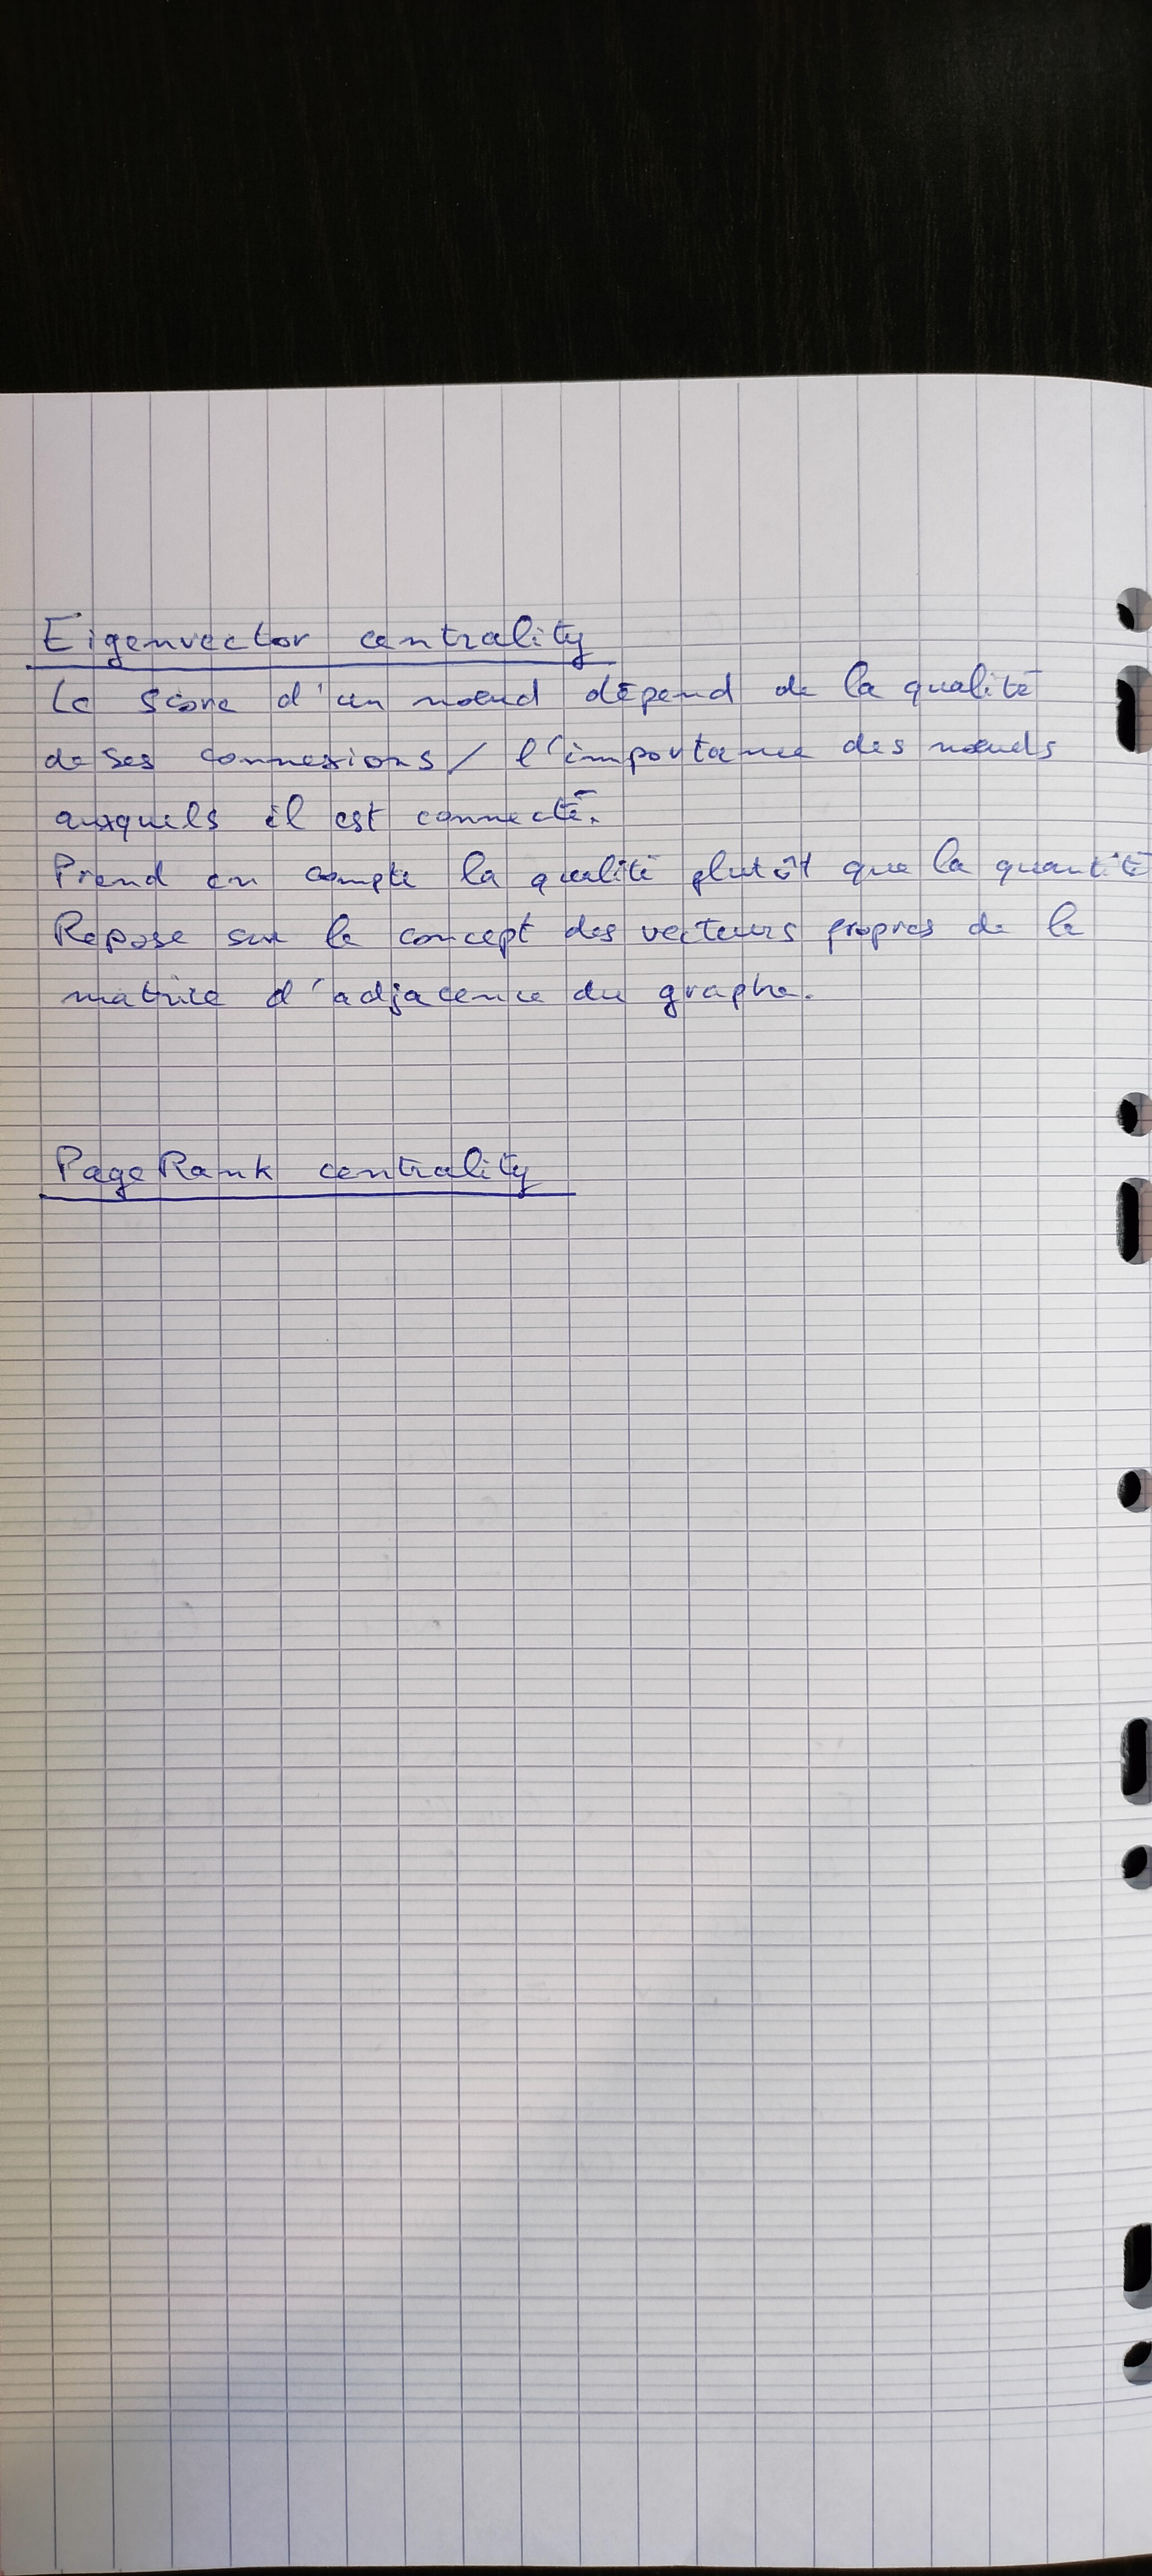 Eigenvector centrality
Le score d'un nœud dépend de la qualité
de ses connexions / l'importance des nœuds
auxquels il est connecté.
Prend en compte la qualité plutôt que la quantité
Repose sur le concept des vecteurs propres de la
matrice d'adjacence du graphe.
PageRank centrality